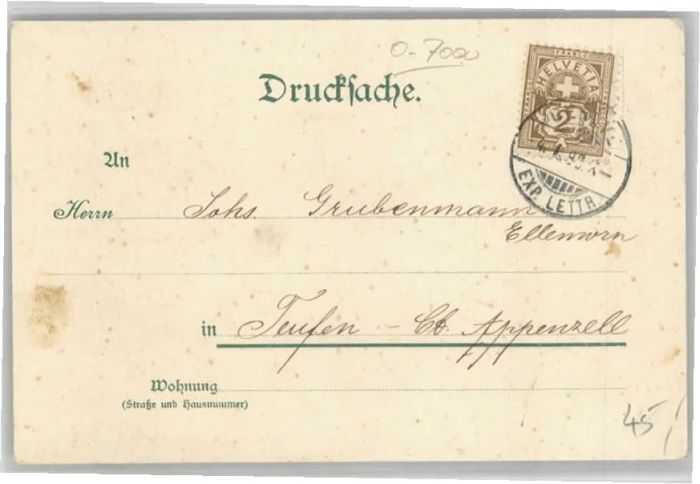 0-7000
Drucksache.
HELVETIA
2
EXP. LETTR.
An
Herrn Johs. Grubenmann
in Teufen – Ct. Appenzell
Wohnung
(Straße und Hausnummer)
45